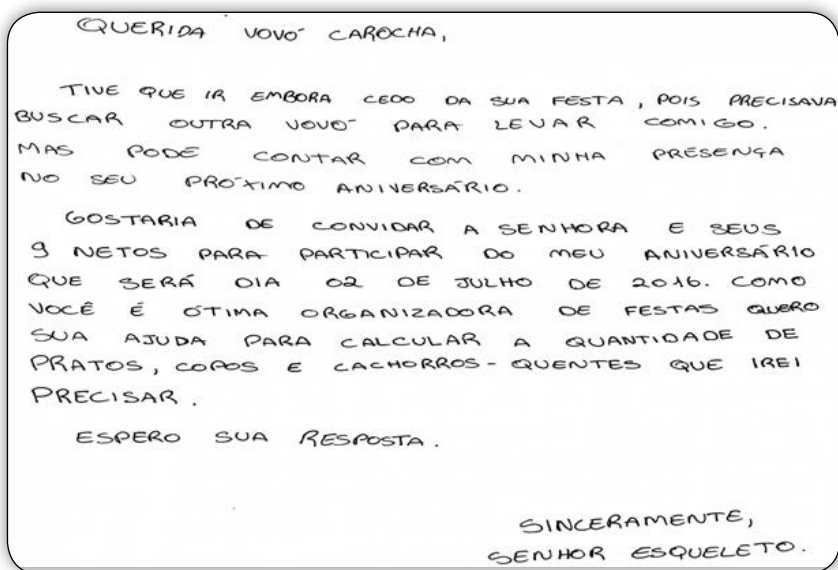 QUERIDA VOVÓ CAROCHA,
TIVE QUE IR EMBORA CEDO DA SUA FESTA, POIS PRECISAVA
BUSCAR OUTRA VOVÓ PARA LEVAR COMIGO.
MAS PODE CONTAR COM MINHA PRESENÇA
NO SEU PRÓXIMO ANIVERSÁRIO.
GOSTARIA DE CONVIDAR A SENHORA E SEUS
9 NETOS PARA PARTICIPAR DO MEU ANIVERSÁRIO
QUE SERÁ DIA 02 DE JULHO DE 2016. COMO
VOCÊ É ÓTIMA ORGANIZADORA DE FESTAS QUERO
SUA AJUDA PARA CALCULAR A QUANTIDADE DE
PRATOS, COPOS E CACHORROS-QUENTES QUE IREI
PRECISAR.
ESPERO SUA RESPOSTA.
SINCERAMENTE,
SENHOR ESQUELETO.